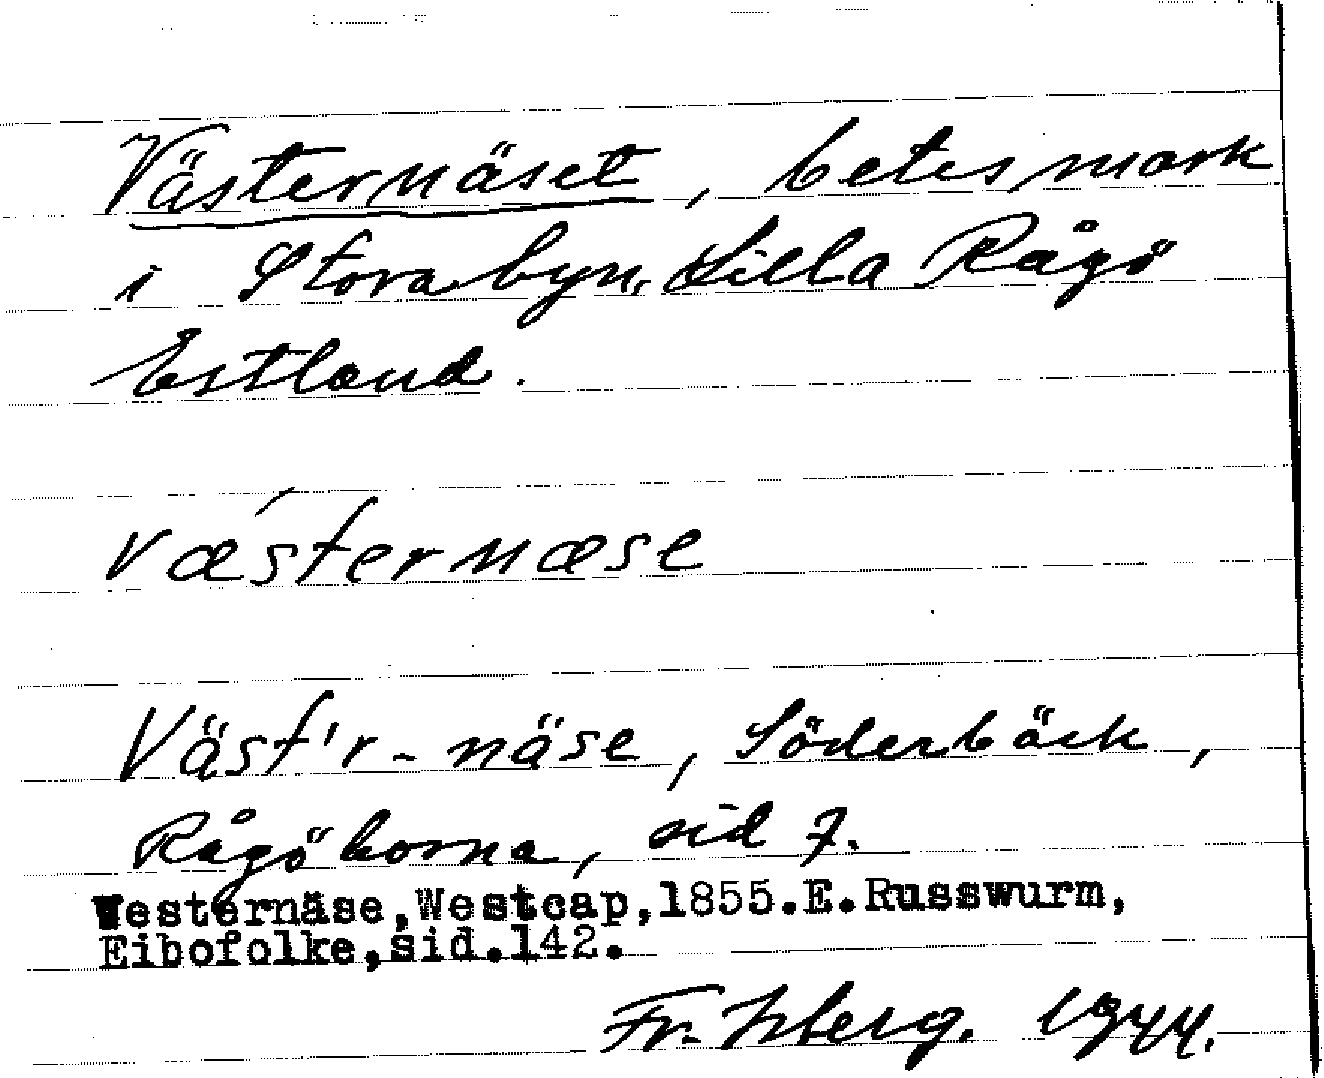 Västernäset, betesmark
i Storabyn, Lilla Rågö
Estland.
vǽsternæse
Väst'r-näse, Söderbäck,
Rågöborna, sid 7.
Westernäse,Westcap,1855.E.Russwurm,
Eibofolke,sid.142.
Fr. Isberg. 1944.